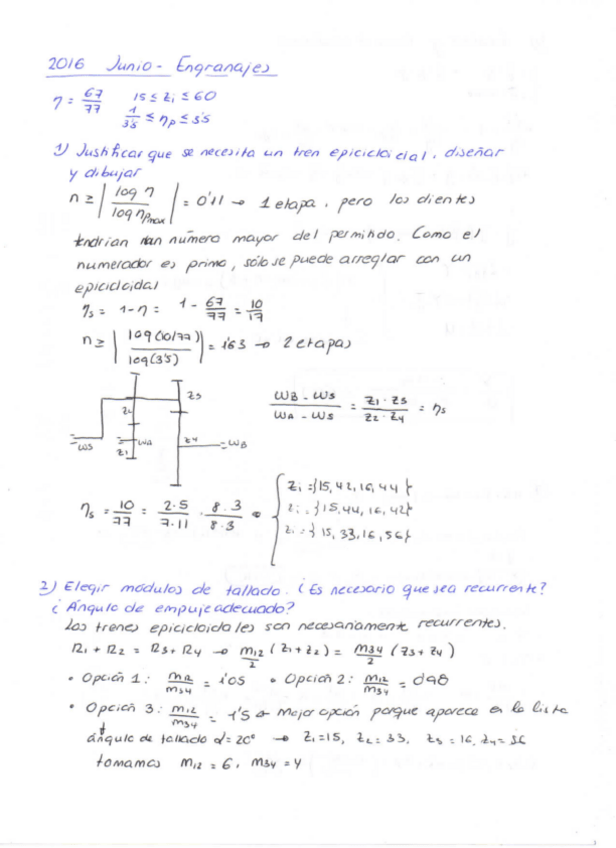 2016 Junio - Engranajes
η = 67/77 15 ≤ Zi ≤ 60
1/3'5 ≤ ηp ≤ 3'5
1) Justificar que se necesita un tren epicicloicial, diseñar
y dibujar
n ≥ | log η / log ηpmax | = 0'11 → 1 etapa, pero los dientes
tendrían un número mayor del permitido. Como el
numerador es primo, sólo se puede arreglar con un
epicicloidal
ηs = 1-η = 1 - 67/77 = 10/17
n ≥ | log(10/77) / log(3'5) | = 1'63 → 2 etapas
Z3
Z2
Z4
WA
WB
WS
Z1
WB - WS / WA - WS = Z1 · Z3 / Z2 · Z4 = ηs
ηs = 10/77 = 2·5/7·11 · 8·3/8·3
Zi = {15, 42, 16, 44}
Zi = {15, 44, 16, 42}
Zi = {15, 33, 16, 56}
2) Elegir módulos de tallado. ¿Es necesario que sea recurrente?
¿Ángulo de empuje adecuado?
Los trenes epicicloidales son necesariamente recurrentes.
R1 + R2 = R3 + R4 → m12/2 (Z1 + Z2) = m34/2 (Z3 + Z4)
• Opción 1: m12/m34 = 1'05 • Opción 2: m12/m34 = 0'98
• Opción 3: m12/m34 = 1'5 ← Mejor opción porque aparece en la lista
ángulo de tallado α = 20° → Z1 = 15, Z2 = 33, Z3 = 16, Z4 = 56
tomamos m12 = 6, m34 = 4